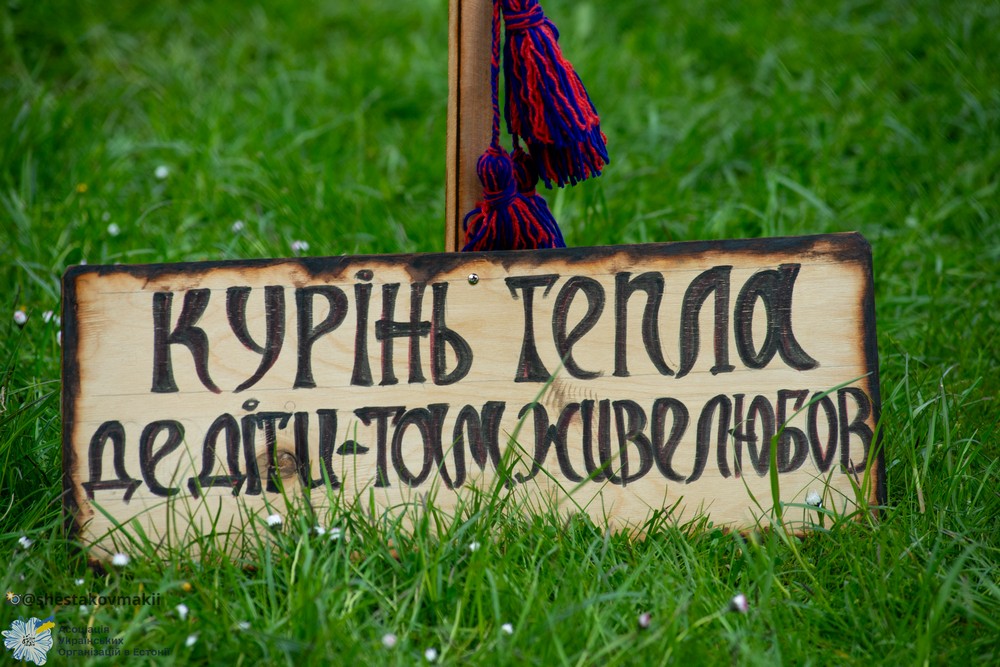 Курінь тепла
Де діти - там живе любов
@shestakovmakii
Асоціація
Українських
Організацій в Естонії